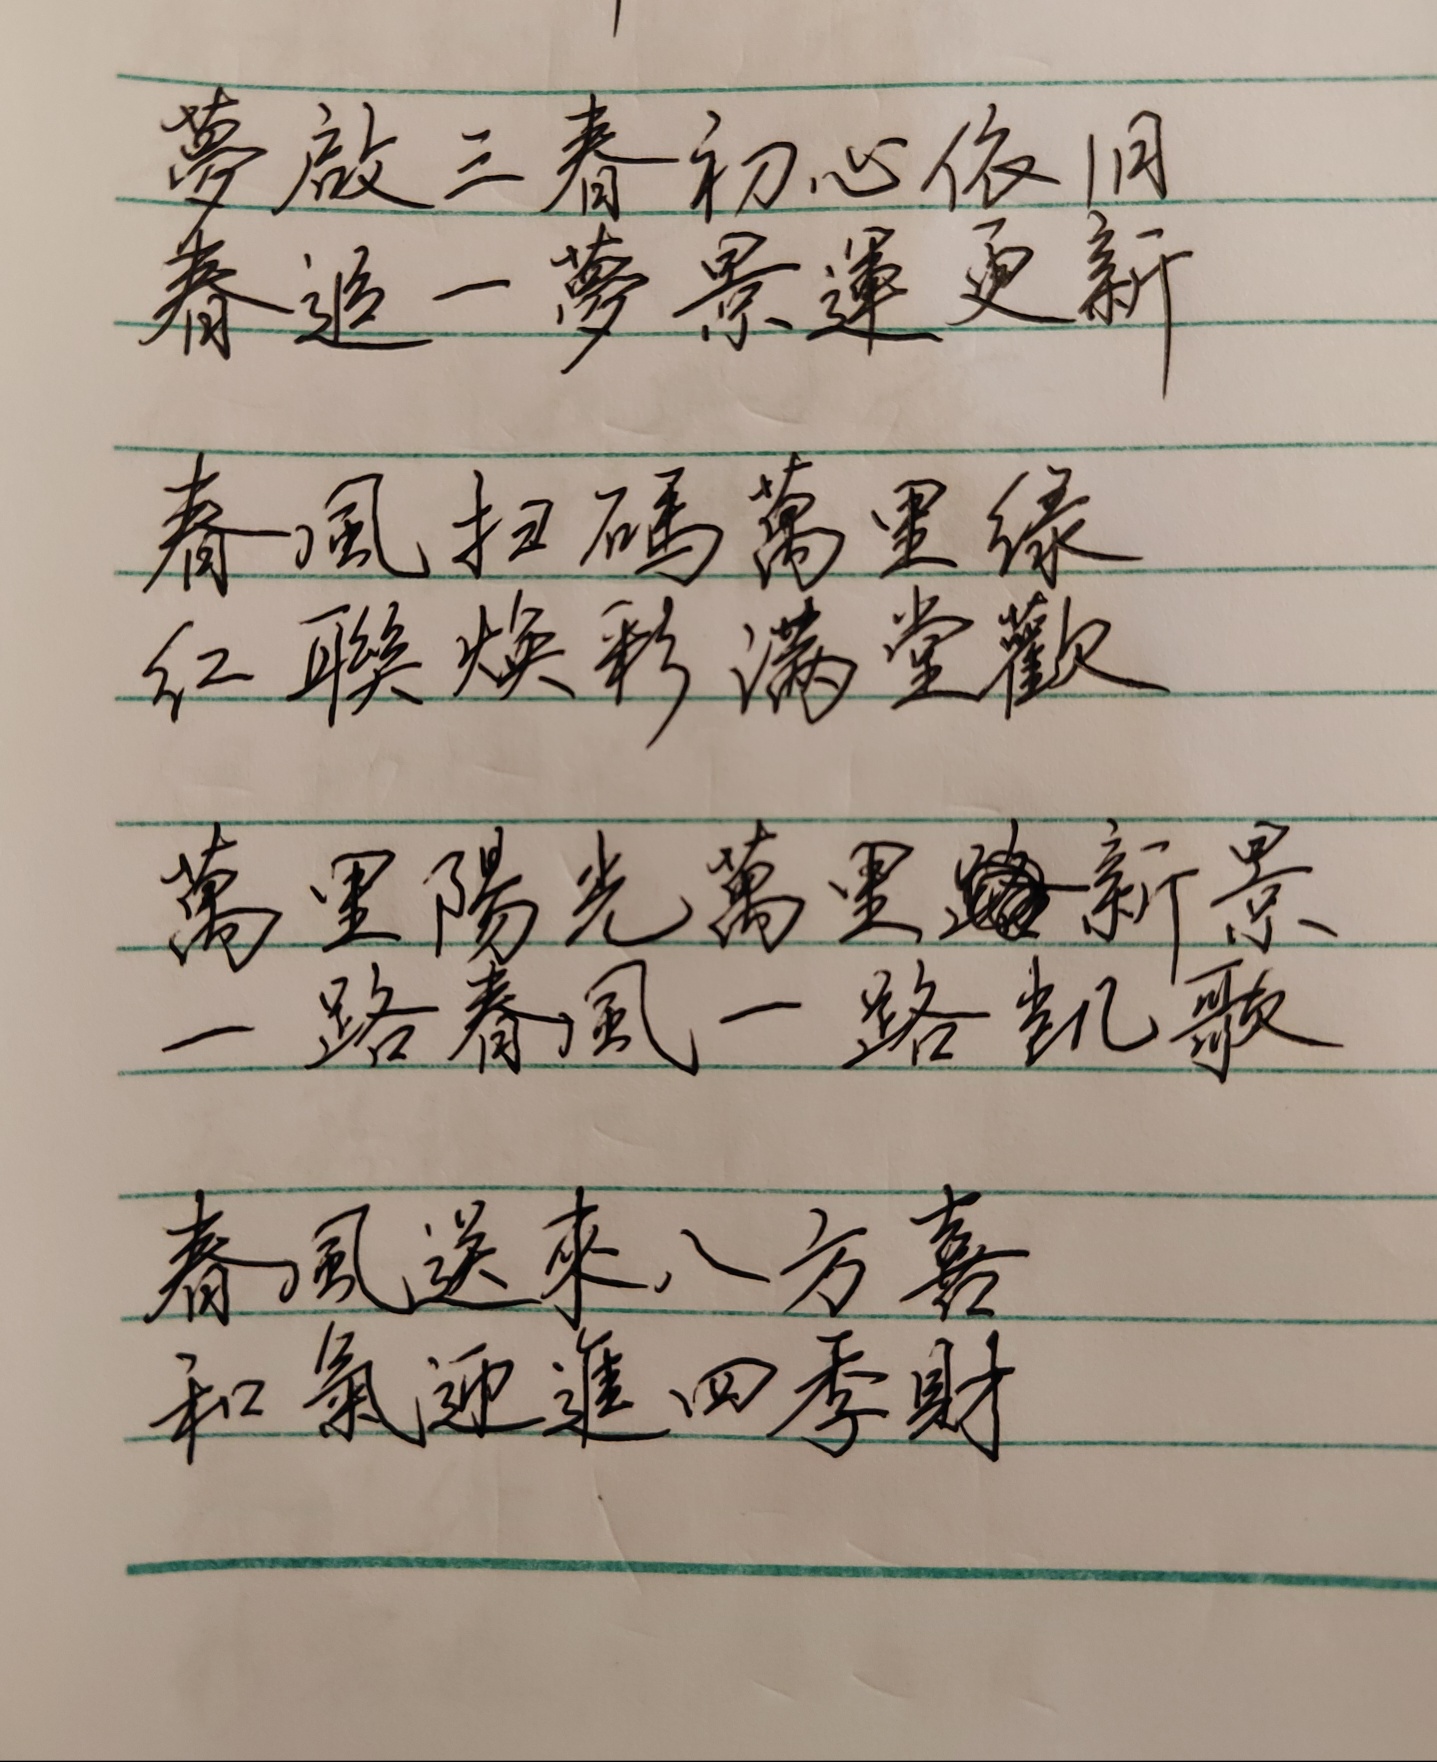 夢啟三春初心依旧
春追一夢景運更新
春風扫碼萬里緣
红聯焕彩滿堂歡
萬里陽光萬里新景
一路春風一路凱歌
春風送來八方喜
和氣迎進四季財